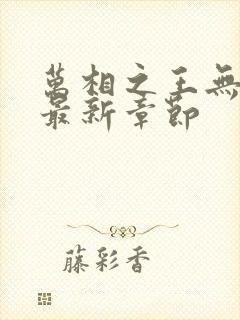 萬相之王無
最新章節
藤彩香